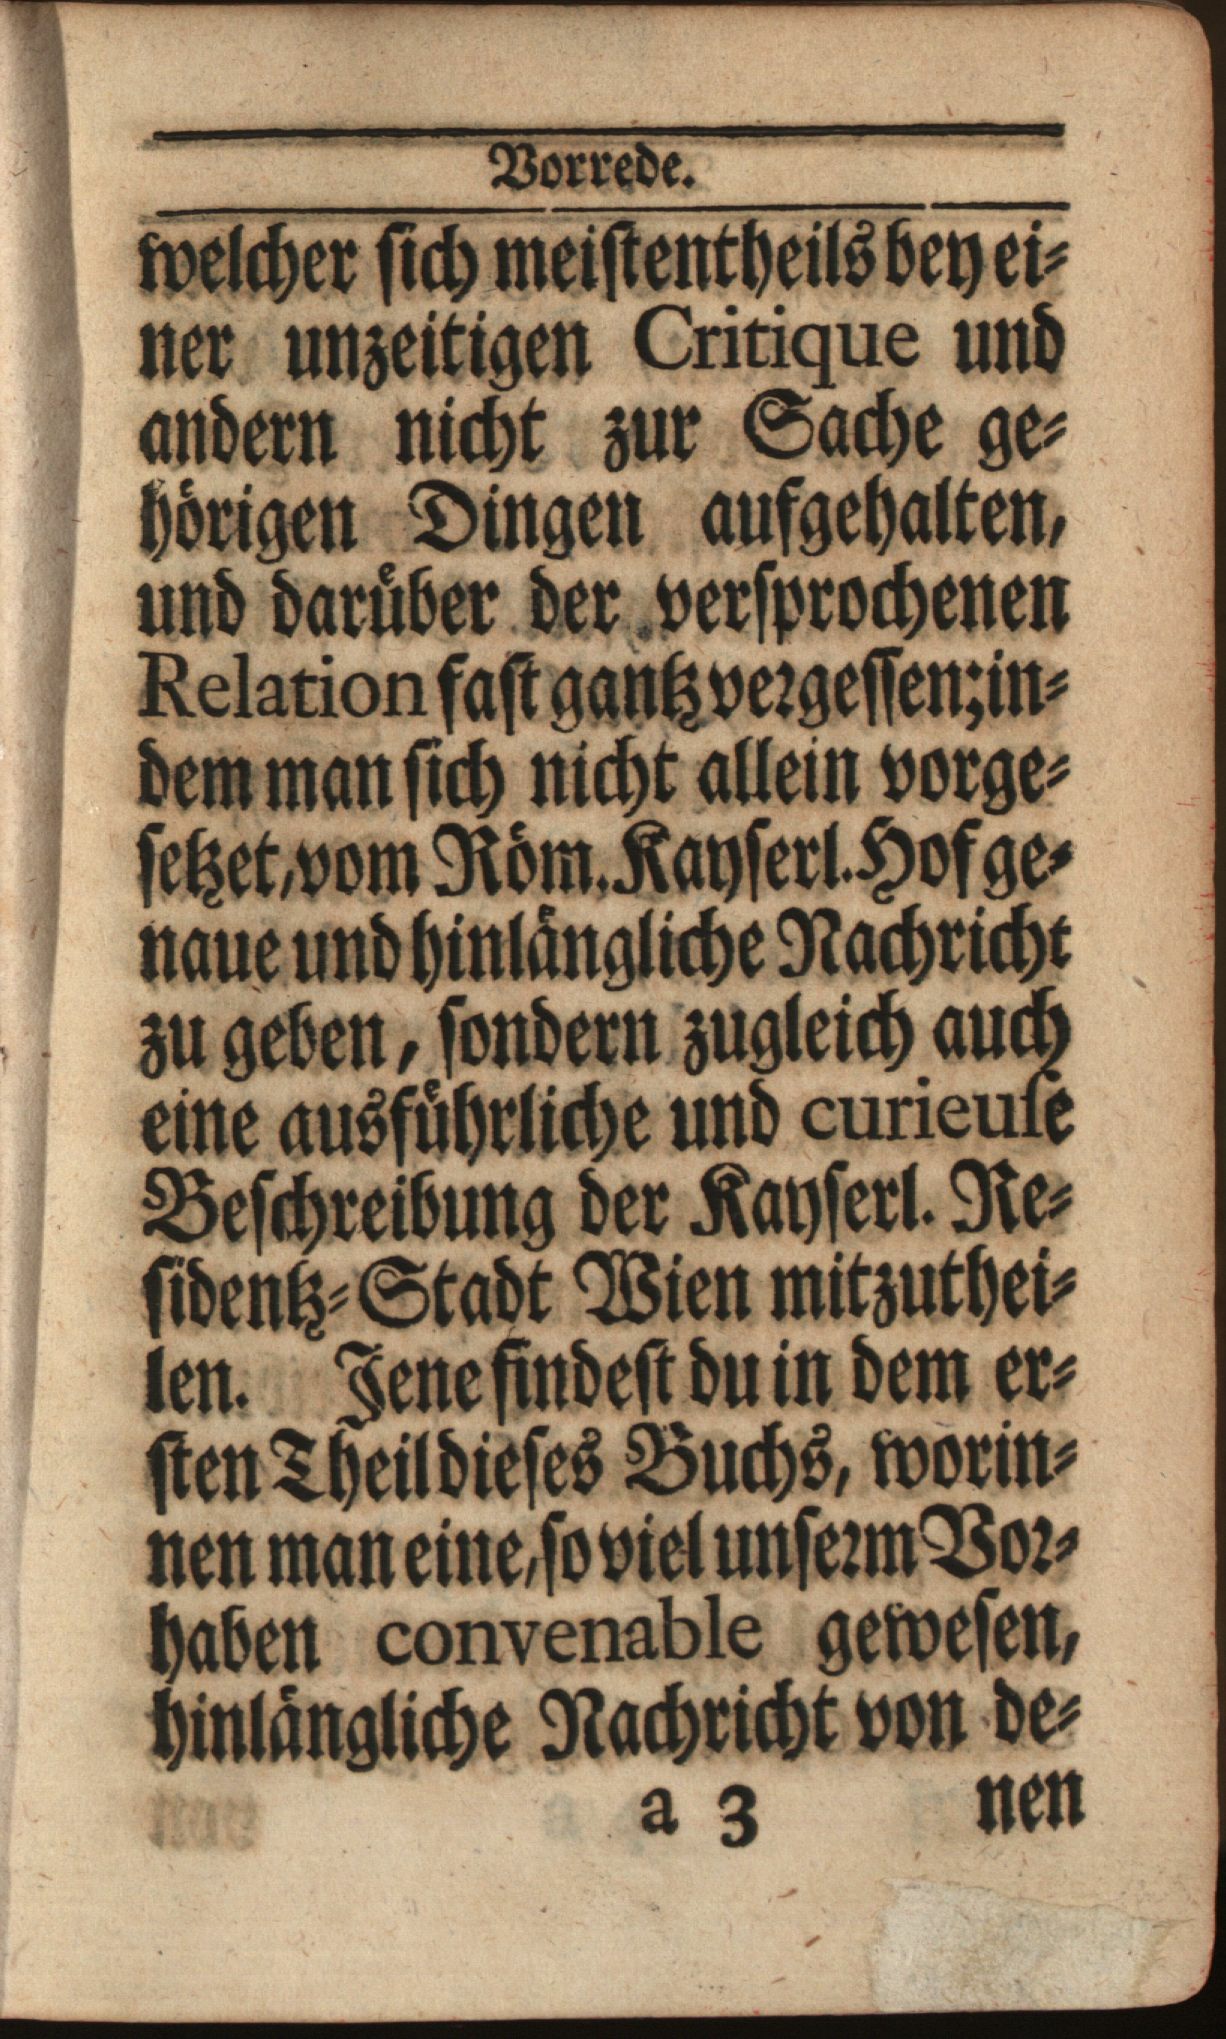 Vorrede.
welcher sich meistentheils bey ei-
ner unzeitigen Critique und
andern nicht zur Sache ge-
hörigen Dingen aufgehalten,
und darüber der versprochenen
Relation fast gantz vergessen; in-
dem man sich nicht allein vorge-
setzet, vom Röm. Kayserl. Hof ge-
naue und hinlängliche Nachricht
zu geben, sondern zugleich auch
eine ausführliche und curieuse
Beschreibung der Kayserl. Re-
sidentz-Stadt Wien mitzuthei-
len. Jene findest du in dem er-
sten Theil dieses Buchs, worin-
nen man eine, so viel unserm Vor-
haben convenable gewesen,
hinlängliche Nachricht von de-
a 3 nen